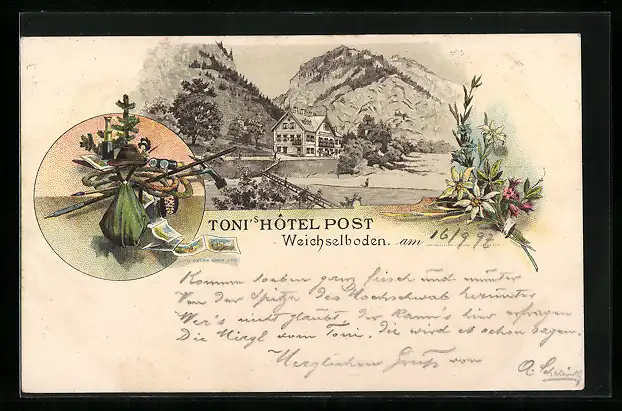 TONI'S HÔTEL POST
Weichselboden. am 16/9 97
Komme soeben ganz frisch und munter
Von der Spitze des Hochschwab herunter
Wer's nicht glaubt, der kann's hier erfragen
Die Mirzl vom Toni, die wird es schon sagen.
Herzlichen Gruß von
A.